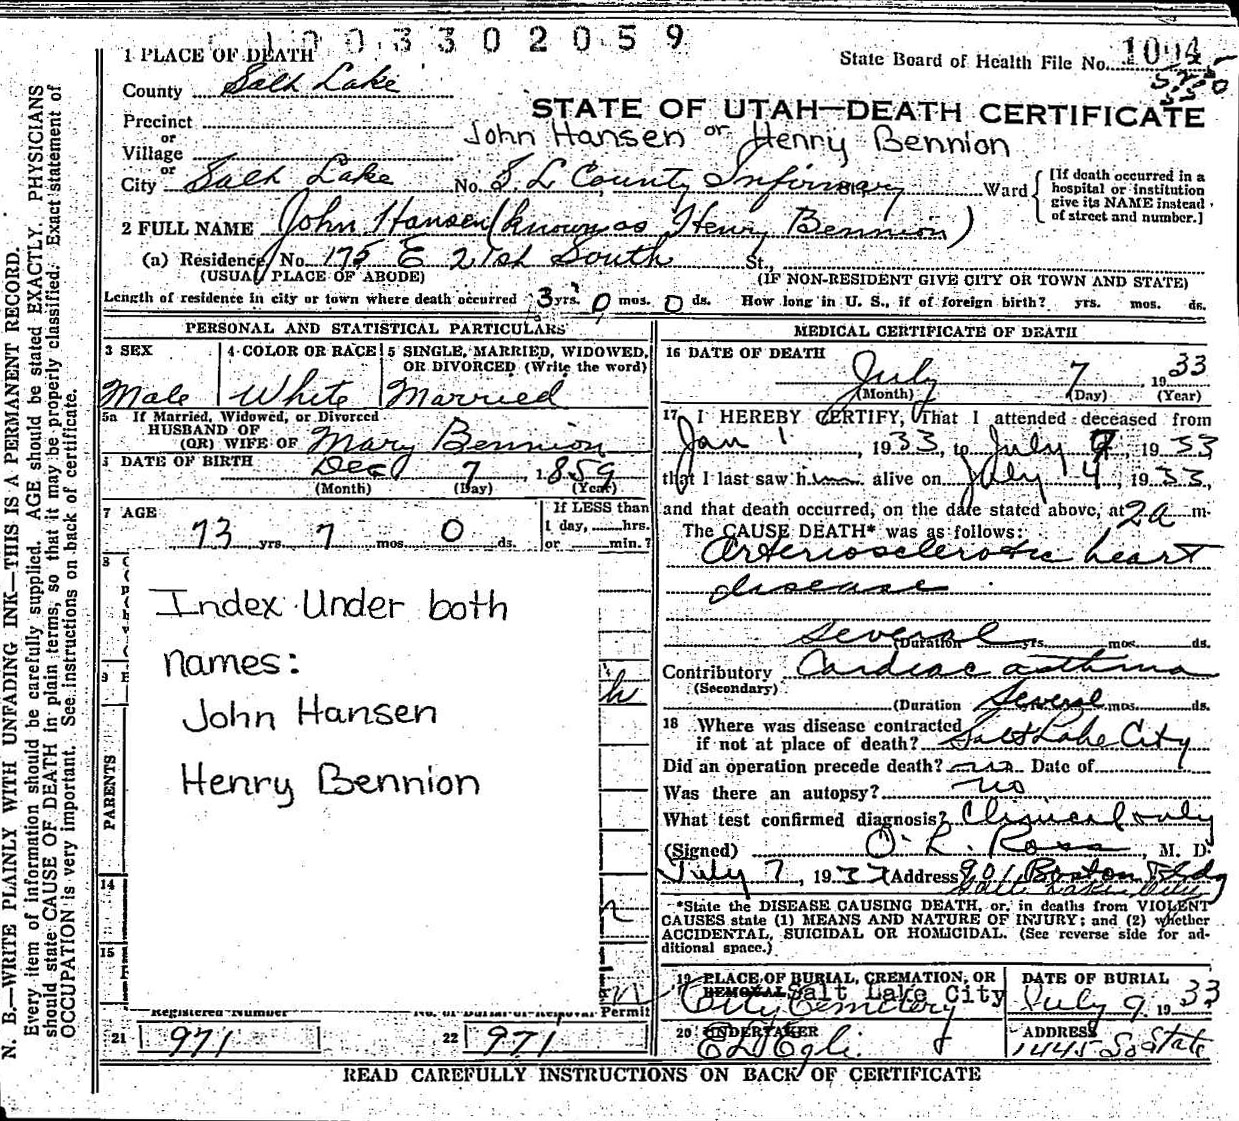 1003302059
1 PLACE OF DEATH
State Board of Health File No. 1094
County Salt Lake
STATE OF UTAH—DEATH CERTIFICATE
Precinct
John Hansen or Henry Bennion
or
Village
or
City Salt Lake No. S. L County Infirmary Ward
[If death occurred in a
hospital or institution
give its NAME instead
of street and number.]
2 FULL NAME John Hansen (known as Henry Bennion)
(a) Residence No. 175 E 21st South St.
(USUAL PLACE OF ABODE) (IF NON-RESIDENT GIVE CITY OR TOWN AND STATE)
Length of residence in city or town where death occurred 3 yrs. 0 mos. 0 ds. How long in U. S., if of foreign birth? yrs. mos. ds.
PERSONAL AND STATISTICAL PARTICULARS
3 SEX 4 COLOR OR RACE 5 SINGLE, MARRIED, WIDOWED,
OR DIVORCED (Write the word)
Male White Married
5a If Married, Widowed, or Divorced
HUSBAND OF
(OR) WIFE OF Mary Bennion
DATE OF BIRTH Dec 7 1859
(Month) (Day) (Year)
7 AGE If LESS than
1 day, hrs.
73 yrs. 7 mos. 0 ds. or min.?
8
9
Index Under both
names:
John Hansen
Henry Bennion
PARENTS
14
15
Registered Number No. of Burial or Removal Permit
21 971 22 971
MEDICAL CERTIFICATE OF DEATH
16 DATE OF DEATH
July 7, 1933
(Month) (Day) (Year)
17 I HEREBY CERTIFY, That I attended deceased from
Jan 1, 1933, to July 7, 1933
that I last saw him alive on July 4, 1933,
and that death occurred, on the date stated above, at 2a m.
The CAUSE DEATH* was as follows:
Arteriosclerotic heart
disease
Several (Duration yrs. mos. ds.
Contributory Cardiac asthma
(Secondary)
(Duration Several mos. ds.
18 Where was disease contracted
if not at place of death? Salt Lake City
Did an operation precede death? no Date of
Was there an autopsy? no
What test confirmed diagnosis? Clinical only
(Signed) O. L. Ross, M. D.
July 7, 1933 Address 901 Boston Bldg
Salt Lake City
*State the DISEASE CAUSING DEATH, or, in deaths from VIOLENT
CAUSES state (1) MEANS AND NATURE OF INJURY; and (2) whether
ACCIDENTAL, SUICIDAL OR HOMICIDAL. (See reverse side for ad-
ditional space.)
19 PLACE OF BURIAL, CREMATION, OR
REMOVAL Salt Lake City
City Cemetery
DATE OF BURIAL
July 9, 1933
20 UNDERTAKER
E L Egli.
ADDRESS
1445 So State
READ CAREFULLY INSTRUCTIONS ON BACK OF CERTIFICATE
N. B.—WRITE PLAINLY WITH UNFADING INK—THIS IS A PERMANENT RECORD.
Every item of information should be carefully supplied. AGE should be stated EXACTLY. PHYSICIANS
should state CAUSE OF DEATH in plain terms, so that it may be properly classified. Exact statement of
OCCUPATION is very important. See instructions on back of certificate.